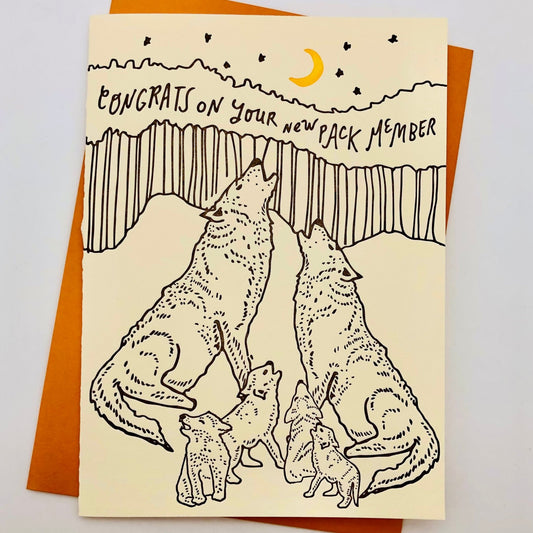 CONGRATS ON YOUR NEW PACK MEMBER